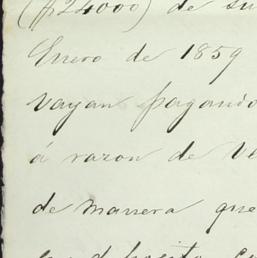 ($24000) de su
Enero de 1859
vayan pagando
á razon de Ve
de manera que